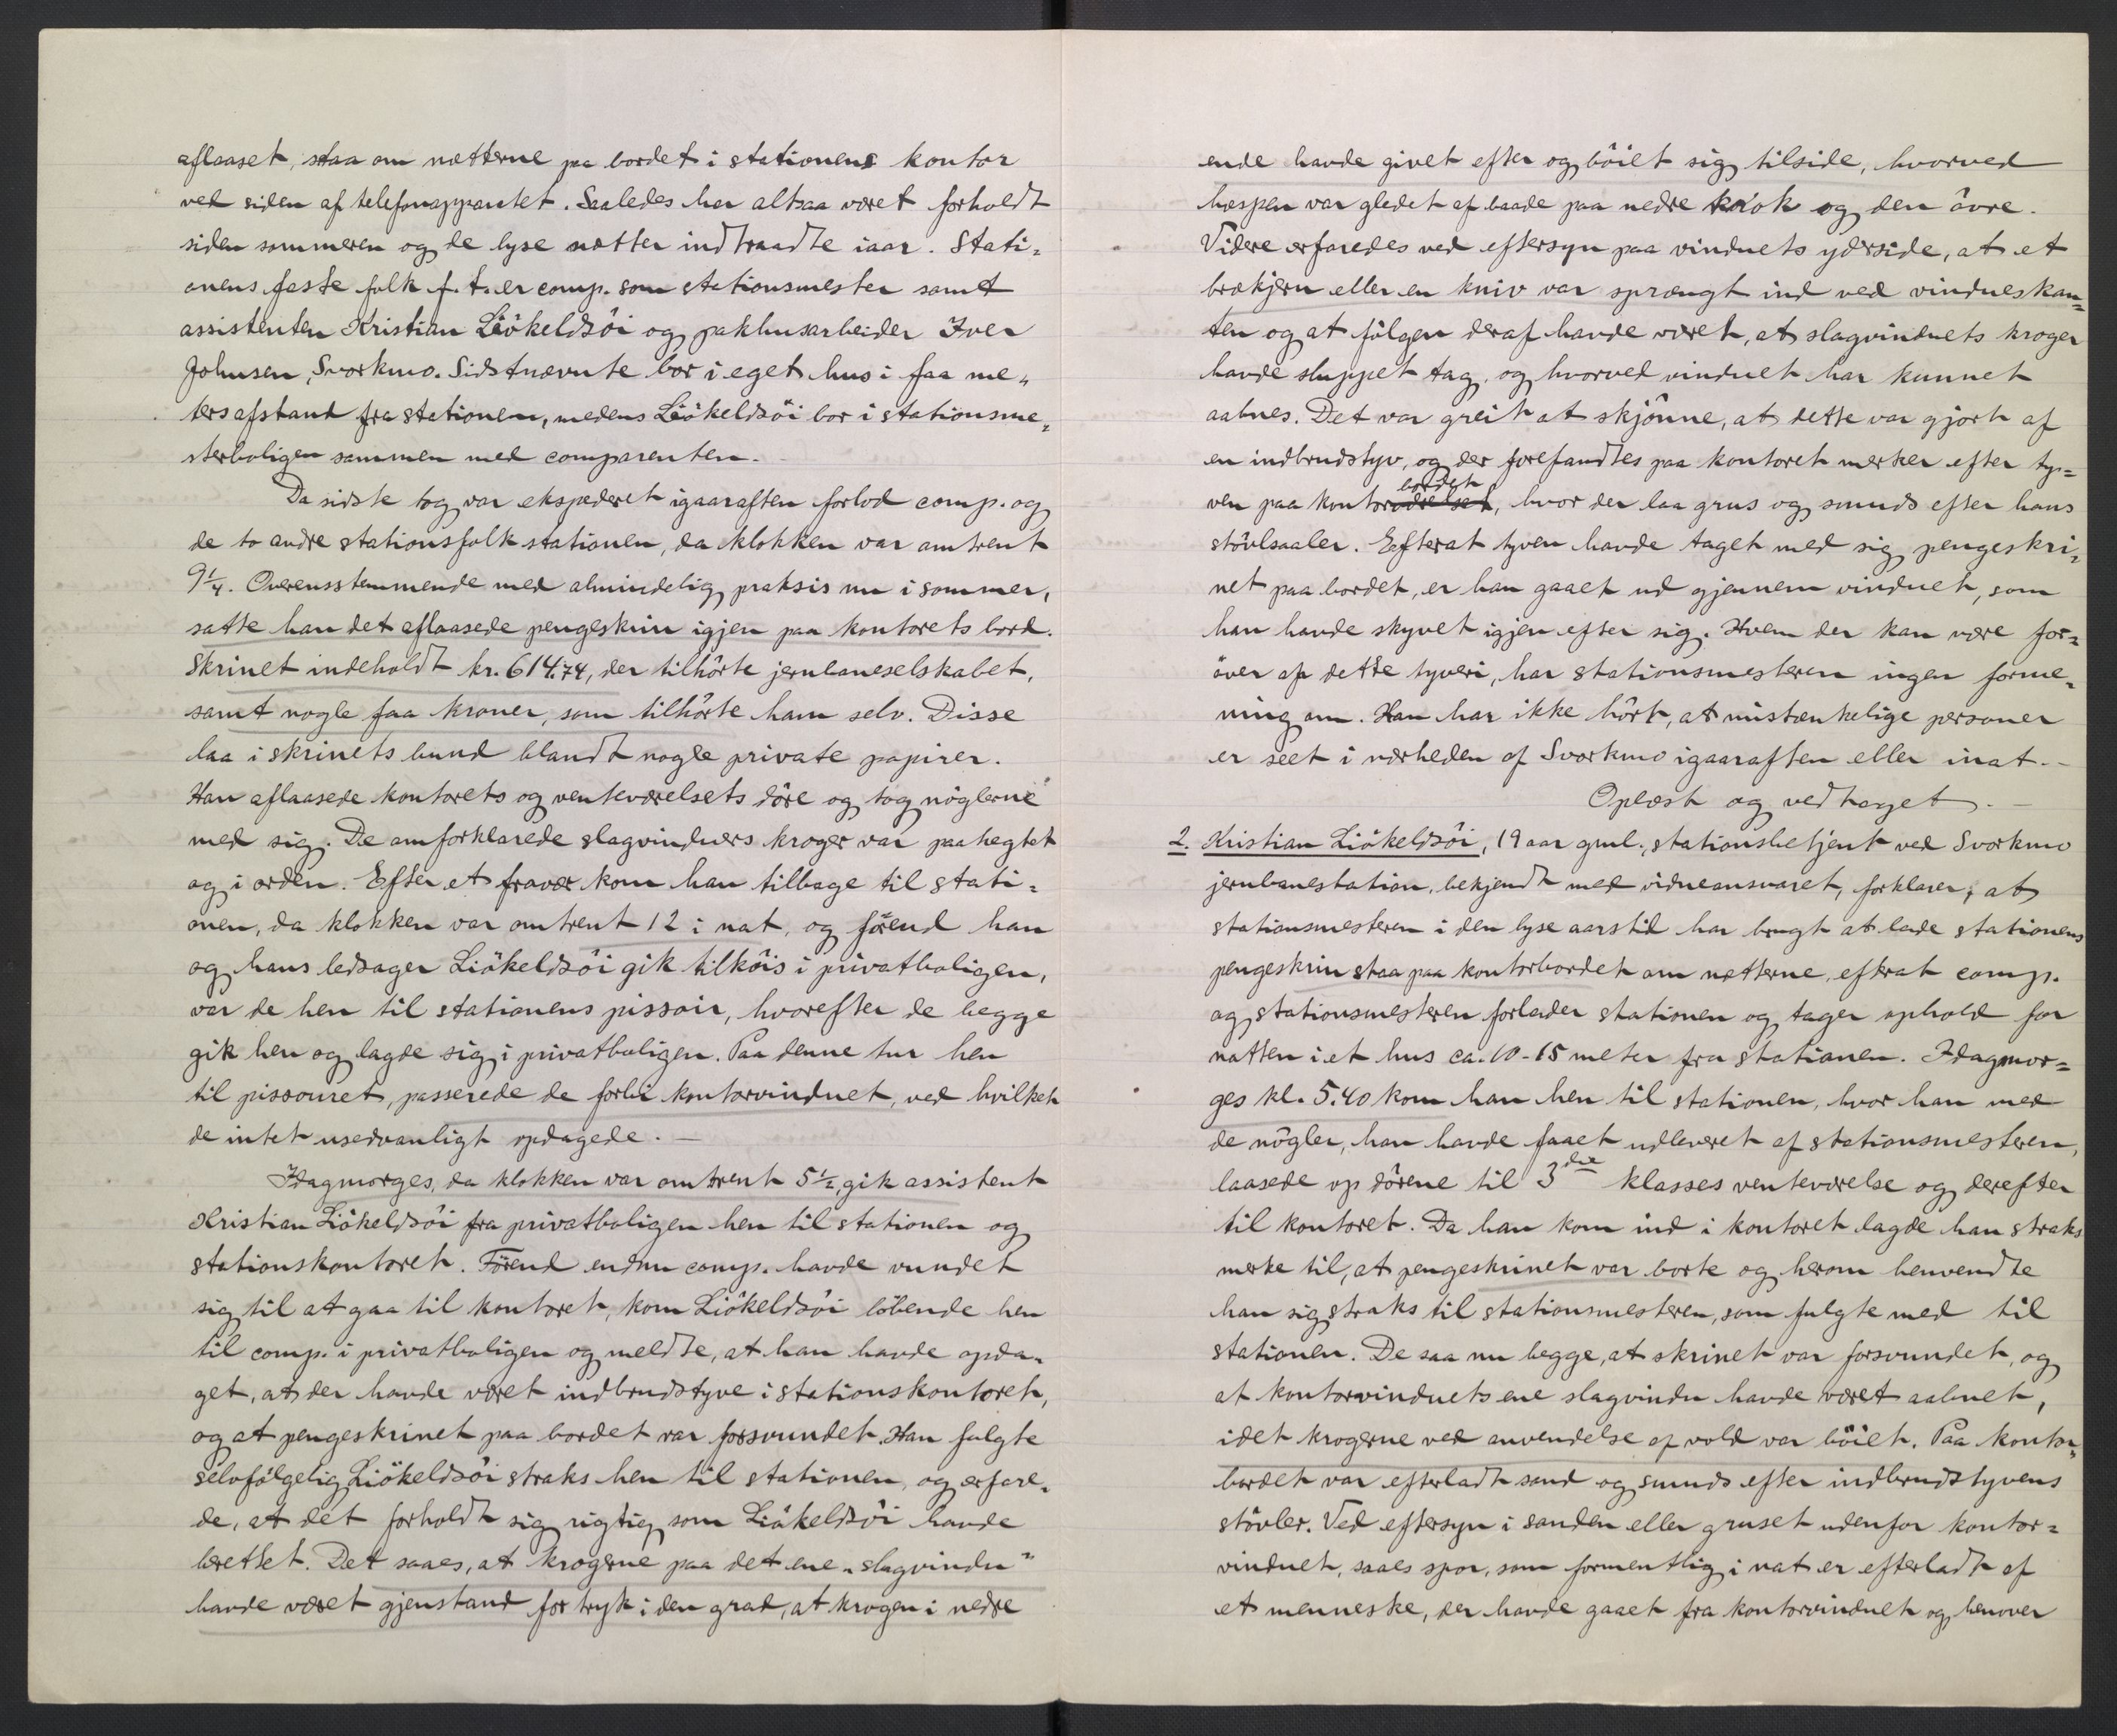 aflaaset, staa om nætterne paa bordet i stationens kontor
ved siden af telefonapparatet. Saaledes har altsaa været forholdt
siden sommeren og de lyse nætter indtraadte iaar. Stati-
onens faste folk f. t. er comp. som stationsmester samt
assistenten Kristian Liökeldsöi og pakhusarbeider Iver
Johnsen, Svorkmo. Sidstnævnte bor i eget hus i faa me-
tersafstand fra stationen, medens Liökeldsöi bor i stationsme-
sterboligen sammen med comparenten. –
Da sidste tog var ekspederet igaaraften forlod comp. og
de to andre stationsfolk stationen, da klokken var omtrent
9¼. Overensstemmende med almindelig praksis nu i sommer,
satte han det aflaasede pengeskrin igjen paa kontorets bord.
Skrinet indeholdt kr. 614.74, der tilhörte jernbaneselskabet,
samt nogle faa kroner, som tilhörte ham selv. Disse
laa i skrinets bund blandt nogle private papirer.
Han aflaasede kontorets og venteværelsets döre og tog nöglerne
med sig. De omforklarede slagvinduers kroger var paahegtet
og i orden. Efter et fravær kom han tilbage til stati-
onen, da klokken var omtrent 12 i nat, og förend han
og hans ledsager Liökeldsöi gik tilköis i privatboligen,
var de hen til stationens pissoir, hvorefter de begge
gik hen og lagde sig i privatboligen. Paa denne tur hen
til pissouret, passerede de forbi kontorvinduet, ved hvilket
de intet usedvanligt opdagede. –
Idagmorges, da klokken var omtrent 5½, gik assistent
Kristian Liökeldsöi fra privatboligen hen til stationen og
stationskontoret. Förend endnu comp. havde vundet
sig til at gaa til kontoret, kom Liökeldsöi löbende hen
til comp. i privatboligen og meldte, at han havde opda-
get, at der havde været indbrudstyve i stationskontoret,
og at pengeskrinet paa bordet var forsvundet. Han fulgte
selvfölgelig Liökeldsöi straks hen til stationen, og erfare-
de, at det forholdt sig rigtig som Liökeldsöi havde
berettet. Det saaes, at krogerne paa det ene „slagvindu"
havde været gjenstand for tryk i den grad, at krogen i nedre
ende havde givet efter og böiet sig tilside, hvorved
hespen var gledet af baade paa nedre krok og den övre.
Videre erfaredes ved eftersyn paa vinduets yderside, at et
brækjern eller en kniv var sprængt ind ved vindueskan-
ten og at fölgen deraf havde været, at slagvinduets kroger
havde sluppet tag, og hvorved vinduet har kunnet
aabnes. Det var greit at skjönne, at dette var gjort af
en indbrudstyv, og der forefandtes paa kontoret merker efter ty-
ven paa kontorbordet, hvor der laa grus og smuds efter hans
stövlsaaler. Efterat tyven havde taget med sig pengeskri-
net paa bordet, er han gaaet ud gjennem vinduet, som
han havde skyvet igjen efter sig. Hvem der kan være for-
över af dette tyveri, har stationsmesteren ingen forme-
ning om. Han har ikke hört, at mistænkelige personer
er seet i nærheden af Svorkmo igaaraften eller inat. –
Oplæst og vedtaget. –
2. Kristian Liökeldsöi, 19 aar gml., stationsbetjent ved Svorkmo
jernbanestation, bekjendt med vidneansvaret, forklarer, at
stationsmesteren i den lyse aarstid har brugt at lade stationens
pengeskrin staa paa kontorbordet om nætterne, efterat comp.
og stationsmesteren forlader stationen og tager ophold for
natten i et hus ca. 10-15 meter fra stationen. Idagmor-
ges kl. 5.40 kom han hen til stationen, hvor han med
de nögler, han havde faaet udleveret af stationsmesteren,
laasede op dörene til 3die klasses venteværelse og derefter
til kontoret. Da han kom ind i kontoret lagde han straks
merke til, at pengeskrinet var borte og herom henvendte
han sig straks til stationsmesteren, som fulgte med til
stationen. De saa nu begge, at skrinet var forsvundet, og
at kontorvinduets ene slagvindu havde været aabnet,
idet krogerne ved anvendelse af vold var böiet. Paa kontor-
bordet var efterladt sand og smuds efter indbrudstyvens
stövler. Ved eftersyn i sanden eller gruset udenfor kontor-
vinduet, saaes spor, som formentlig i nat er efterladt af
et menneske, der havde gaaet fra kontorvinduet og henover